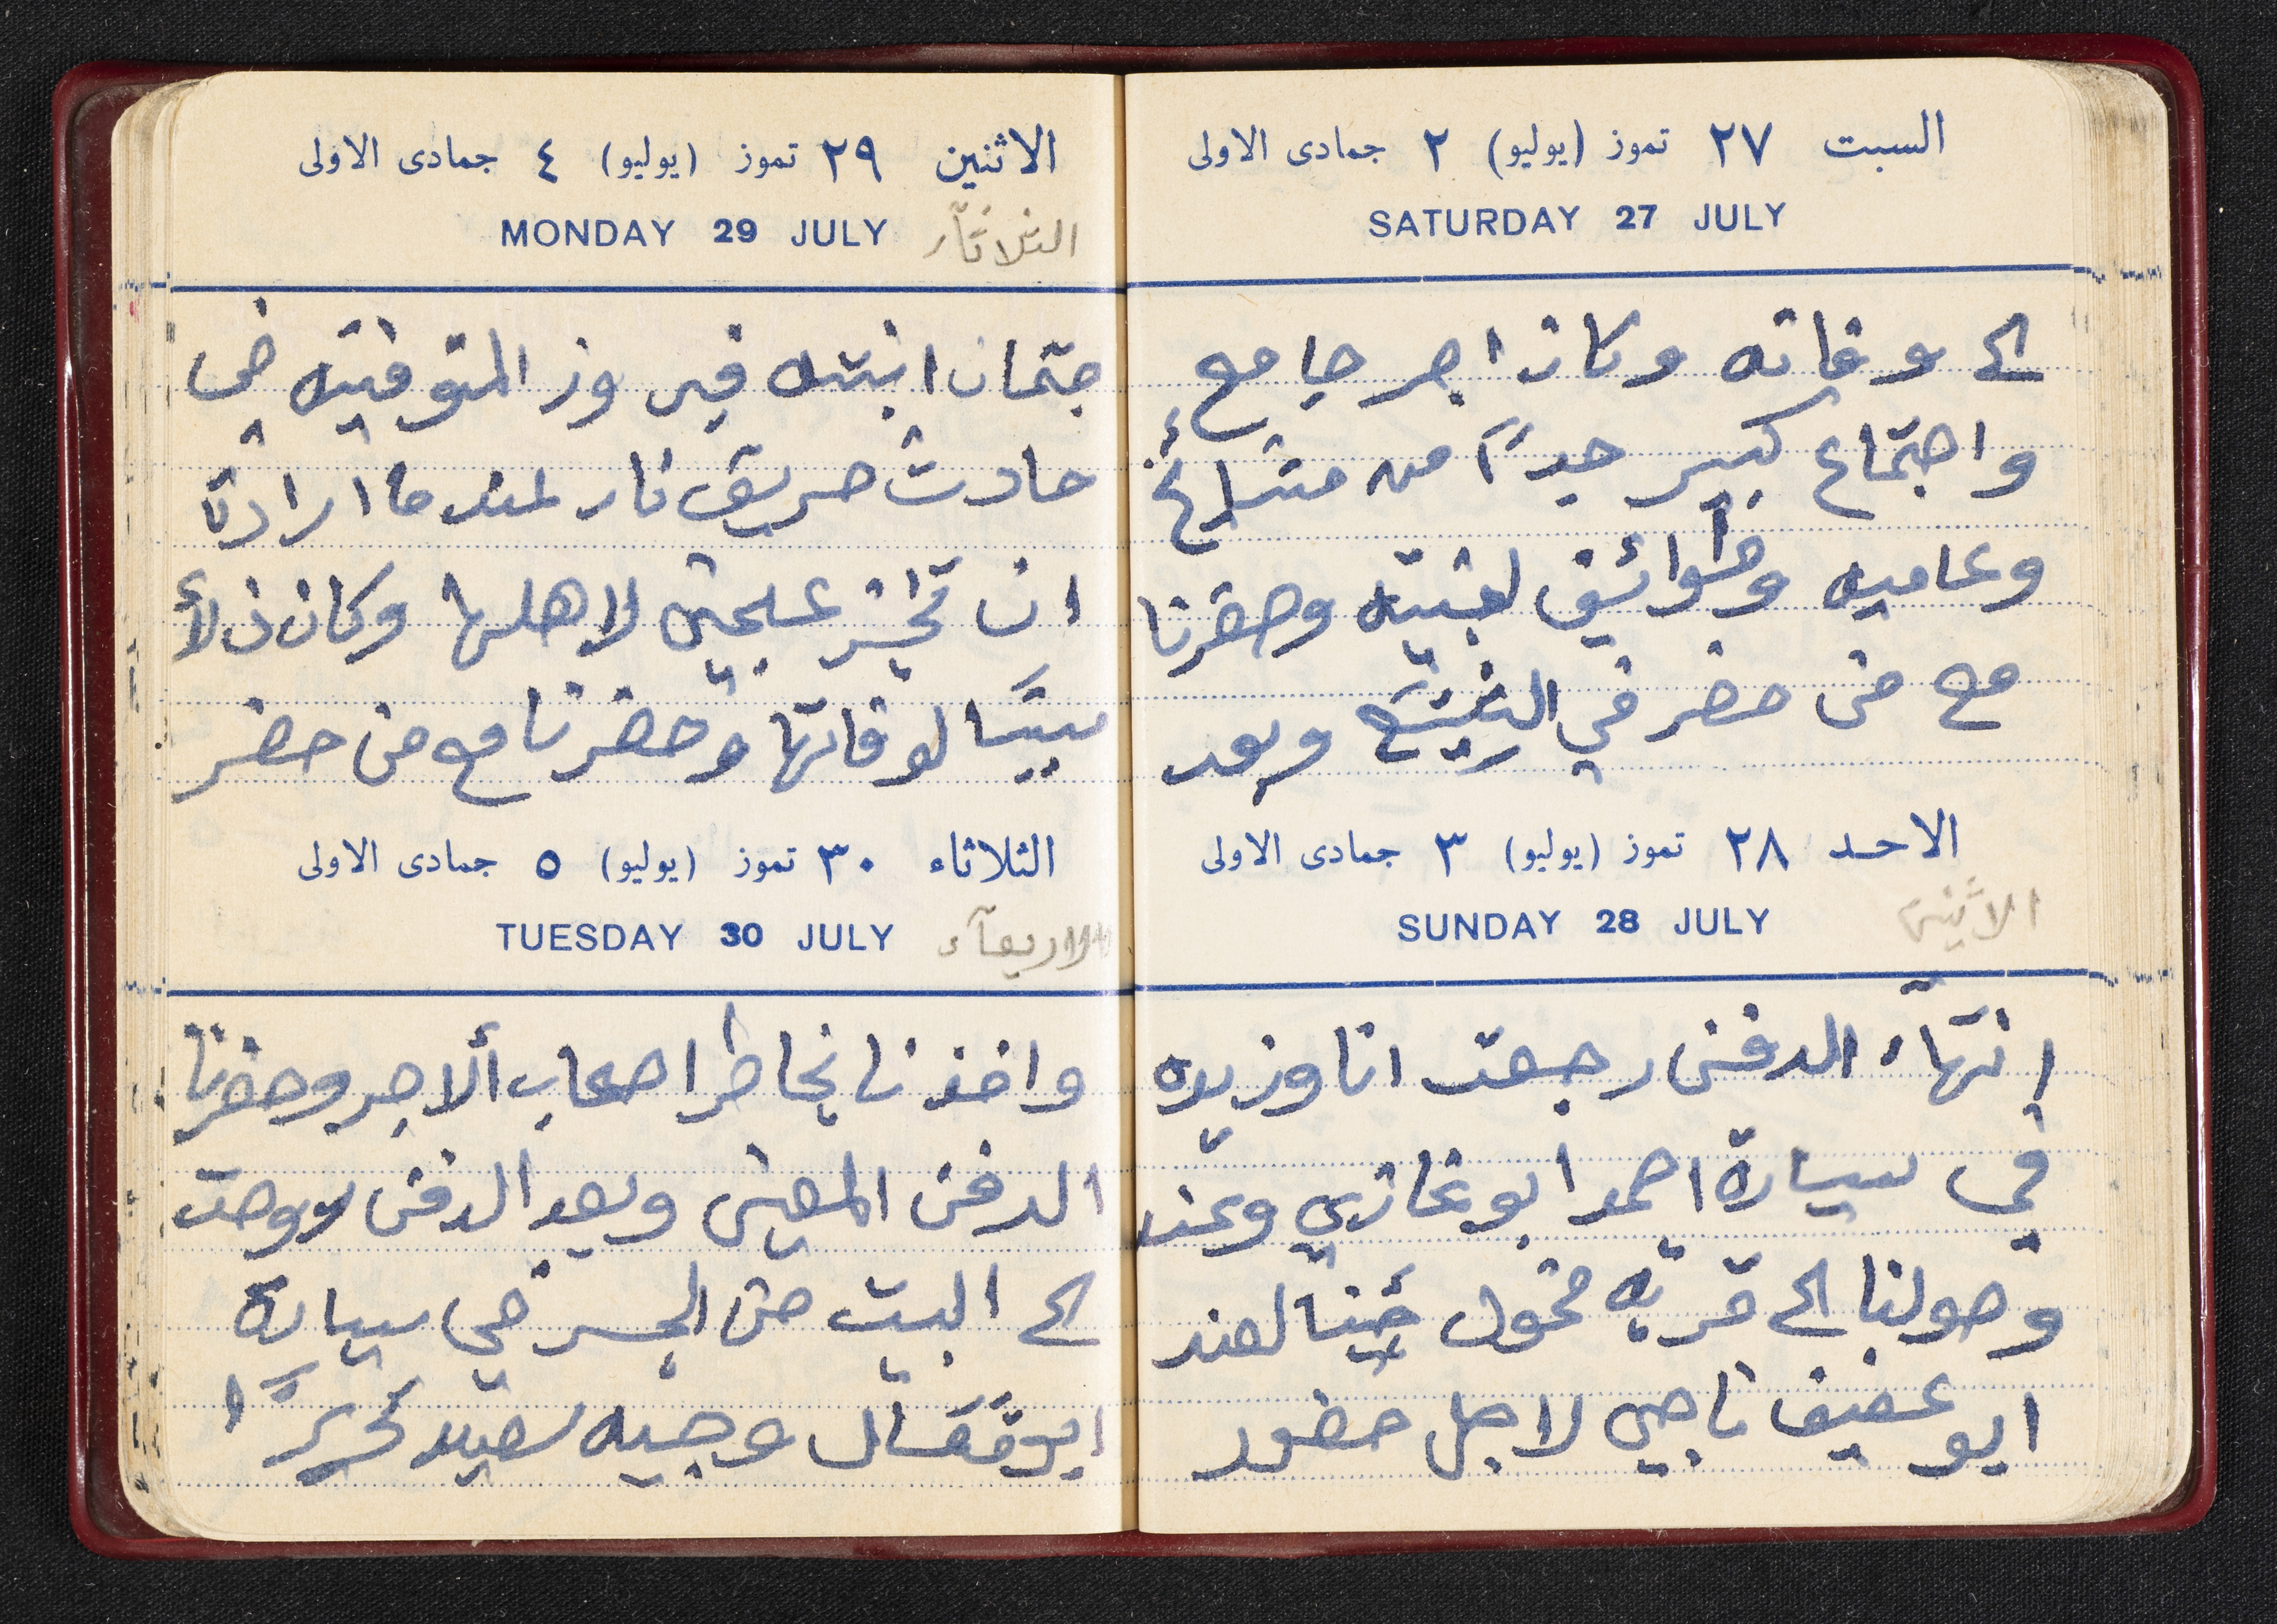 السبت ٢٧ تموز (يوليو) ٢ جمادى الاولى
SATURDAY 27 JULY
الى وفاته وكان اجر جامع
واجتماع كبير جداً من مشايخ
وعاميه وطوائف لفتيه وحضرنا
مع من حضر في التشيّع وبعد
الاحد ٢٨ تموز (يوليو) ٣ جمادى الاولى
SUNDAY 28 JULY
الاثنين
انتهآء الدفن رجعت انا وزيده
في سيارة احمد ابو غازي وعند
وصولنا الى قريه مخول جينا لعند
ابو عفيف ناجي لاجل حضور
الاثنين ٢٩ تموز (يوليو) ٤ جمادى الاولى
MONDAY 29 JULY
الثلاثآء
جتمان ابنته فيروز المتوفيه في
حادث حريق نار لعندما ارادة
ان تخبز عجين لاهلها وكان ذلك
سببًا لوفاتها وحضرنا مع من حضر
الثلاثاء ٣٠ تموز (يوليو) ٥ جمادى الاولى
TUESDAY 30 JULY
الاربعآء
واخذنا بخاطر اصحاب ألاجر وحضرنا
الدفن المعين وبعد الدفن روحت
الى البيت من الجسر في سيارة
ابو وجيه سعيد تحريرًا